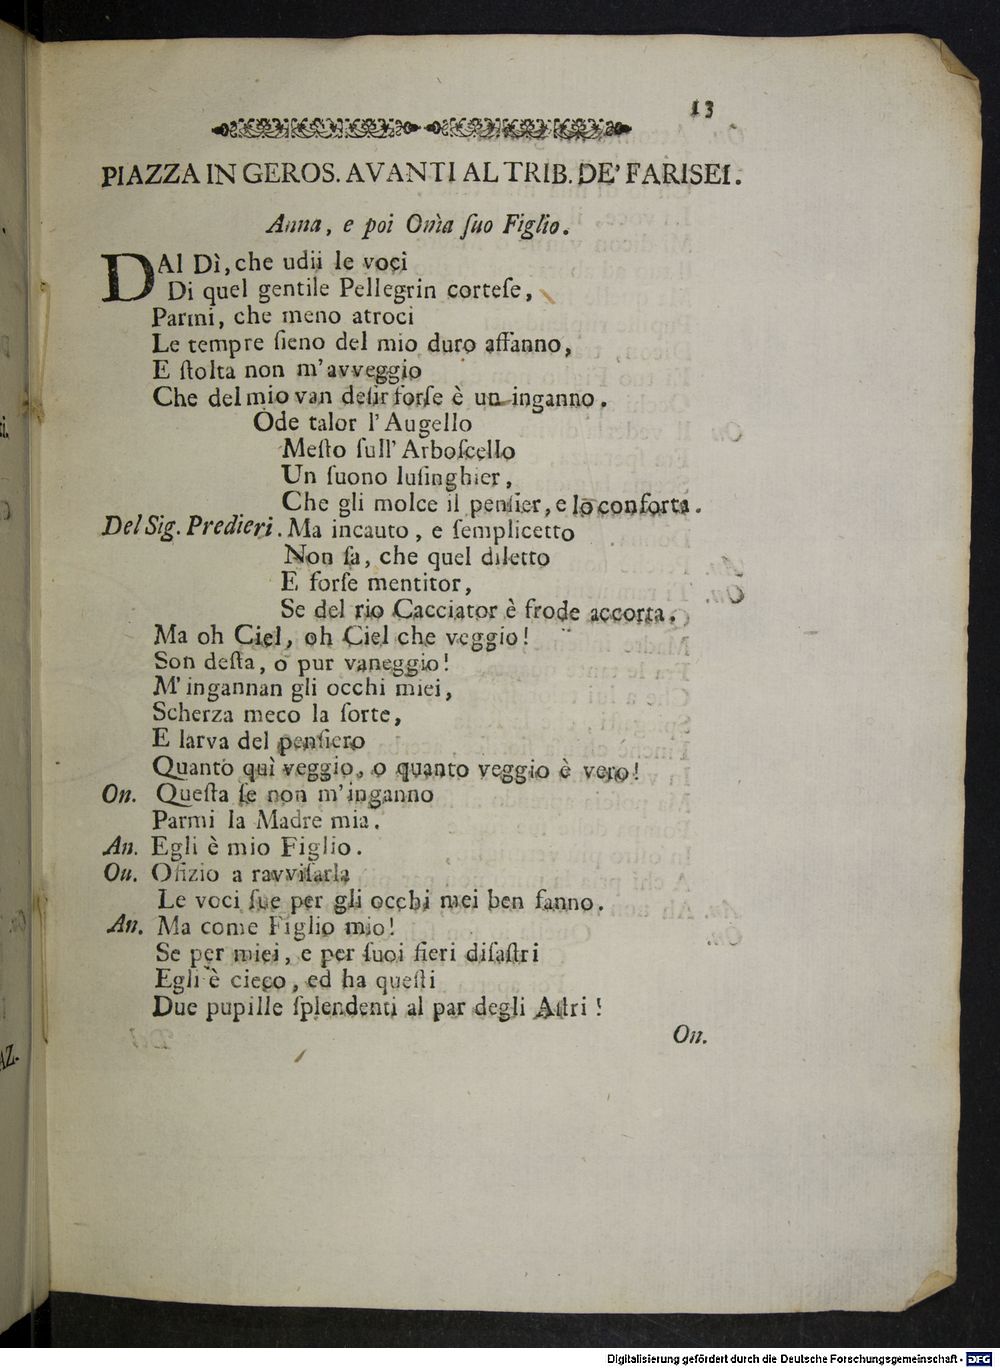 13
PIAZZA IN GEROS. AVANTI AL TRIB. DE' FARISEI.
Anna, e poi Onìa ſuo Figlio.
DAl Dì, che udii le voci
Di quel gentile Pellegrin corteſe,
Parmi, che meno atroci
Le tempre ſieno del mio duro affanno,
E ſtolta non m'avveggio
Che del mio van deſir forſe è un inganno.
Ode talor l'Augello
Meſto ſull'Arboſcello
Un ſuono luſinghier,
Che gli molce il penſier, e lo conforta.
Del Sig. Predieri. Ma incauto, e ſemplicetto
Non ſa, che quel diletto
E forſe mentitor,
Se del rio Cacciator è frode accorta.
Ma oh Ciel, oh Ciel che veggio!
Son deſta, o pur vaneggio!
M'ingannan gli occhi miei,
Scherza meco la ſorte,
E larva del penſiero
Quanto quì veggio, o quanto veggio è vero!
On. Queſta ſe non m'inganno
Parmi la Madre mia.
An. Egli è mio Figlio.
On. Ofizio a ravviſarla
Le voci ſue per gli occhi mei ben fanno.
An. Ma come Figlio mio!
Se per miei, e per ſuoi fieri diſaſtri
Egli è cieco, ed ha queſti
Due pupille ſplendenti al par degli Aſtri!
On.
ti.
AZ.
Digitalisierung gefördert durch die Deutsche Forschungsgemeinschaft - DFG